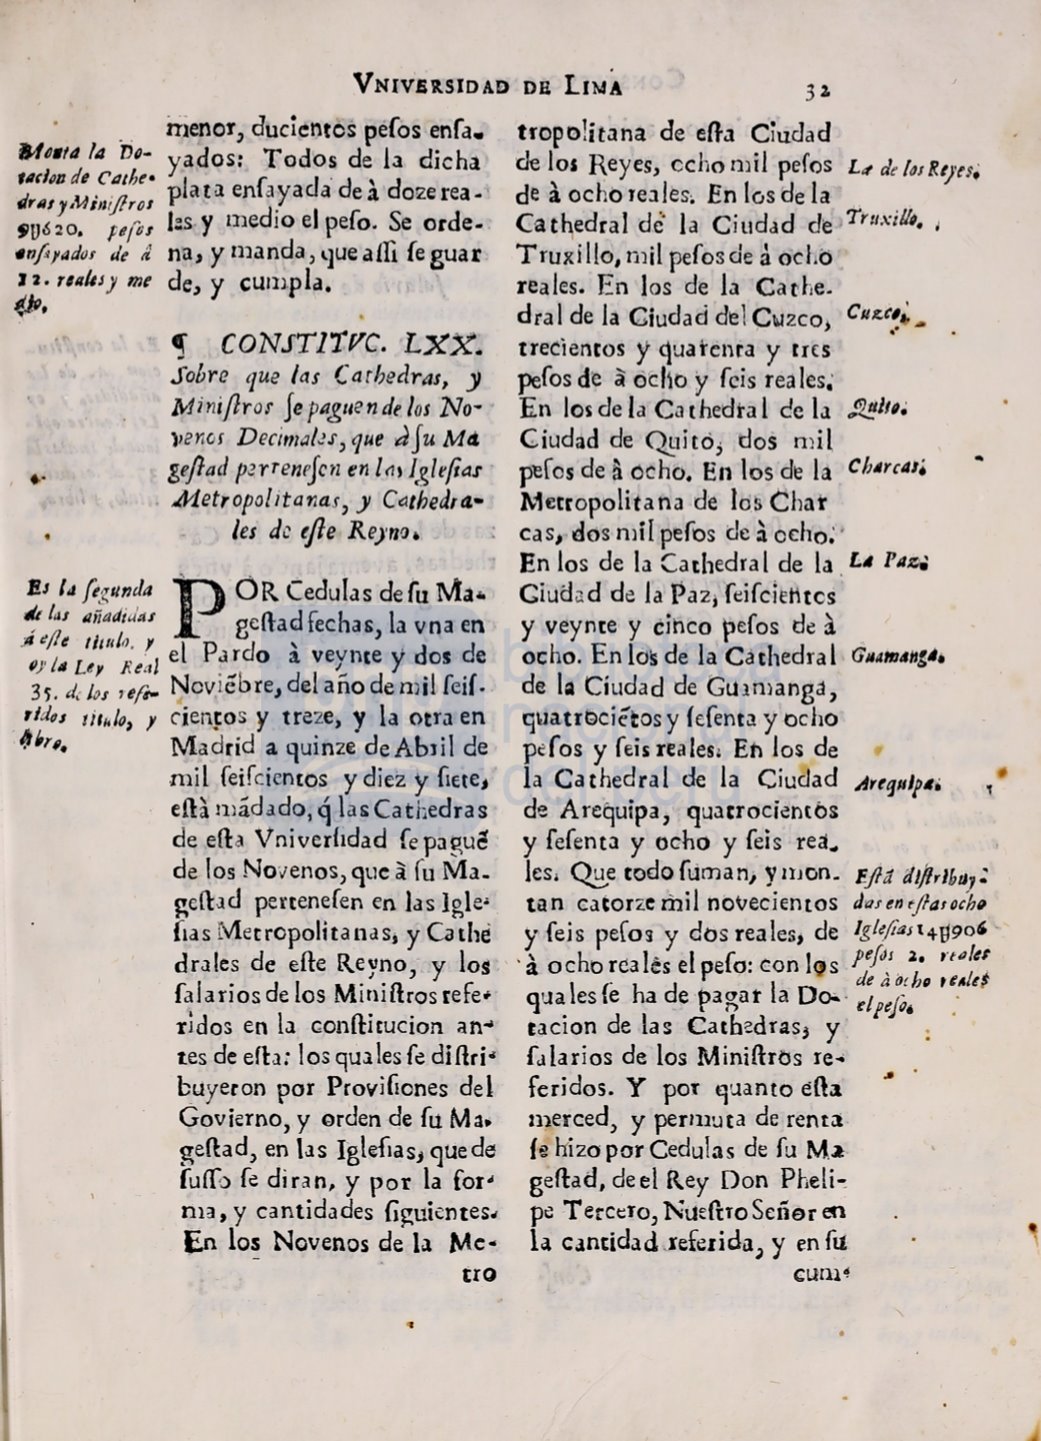 VNIVERSIDAD DE LIMA
32
Monta la Do-
tacion de Cathe-
dras y Miniſtros
9U620. peſos
enſayados de á
12. reales y me
dio.
menor, ducientos peſos enſa-
yados: Todos de la dicha
plata enſayada de à doze rea-
les y medio el peſo. Se orde-
na, y manda, que aſſi ſe guar
de, y cumpla.
¶ CONSTITVC. LXX.
Sobre que las Cathedras, y
Miniſtros ſe paguen de los No-
venos Decimales, que à ſu Ma
geſtad perteneſen en las Igleſias
Metropolitanas, y Cathedra-
les de eſte Reyno.
Es la ſegunda
de las añadidas
á eſte titulo, y
oy la Ley Real
35. de los refe-
ridos titulo, y
libro.
POR Cedulas de ſu Ma-
geſtad fechas, la vna en
el Pardo à veynte y dos de
Noviẽbre, del año de mil ſeiſ-
cientos y treze, y la otra en
Madrid a quinze de Abril de
mil ſeiſcientos y diez y ſiete,
eſtà mãdado, q́ las Cathedras
de eſta Vniverſidad ſe paguẽ
de los Novenos, que à ſu Ma-
geſtad perteneſen en las Igle-
ſias Metropolitanas, y Cathe
drales de eſte Reyno, y los
ſalarios de los Miniſtros refe-
ridos en la conſtitucion an-
tes de eſta: los quales ſe diſtri-
buyeron por Proviſiones del
Govierno, y orden de ſu Ma-
geſtad, en las Igleſias, que de
ſuſſo ſe diran, y por la for-
ma, y cantidades ſiguientes.
En los Novenos de la Me-
tro
tropolitana de eſta Ciudad
de los Reyes, ocho mil peſos
de à ocho reales. En los de la
Cathedral de la Ciudad de
Truxillo, mil peſos de à ocho
reales. En los de la Cathe-
dral de la Ciudad del Cuzco,
trecientos y quarenta y tres
peſos de à ocho y ſeis reales.
En los de la Cathedral de la
Ciudad de Quito, dos mil
peſos de à ocho. En los de la
Metropolitana de los Char
cas, dos mil peſos de à ocho.
En los de la Cathedral de la
Ciudad de la Paz, ſeiſcientos
y veynte y cinco peſos de à
ocho. En los de la Cathedral
de la Ciudad de Guamanga,
quatrociẽtos y ſeſenta y ocho
peſos y ſeis reales. En los de
la Cathedral de la Ciudad
de Arequipa, quatrocientos
y ſeſenta y ocho y ſeis rea-
les. Que todo ſuman, y mon-
tan catorze mil novecientos
y ſeis peſos y dos reales, de
à ocho reales el peſo: con los
quales ſe ha de pagar la Do-
tacion de las Cathedras, y
ſalarios de los Miniſtros re-
feridos. Y por quanto eſta
merced, y permuta de renta
ſe hizo por Cedulas de ſu Ma
geſtad, de el Rey Don Pheli-
pe Tercero, Nueſtro Señor en
la cantidad referida, y en ſu
cum-
La de los Reyes.
Truxillo.
Cuzco.
Quito.
Charcas.
La Paz.
Guamanga.
Arequipa.
Eſtã diſtribuy-
das en eſtas ocho
Igleſias 14U906
peſos 2. reales
de à ocho reales
el peſo.